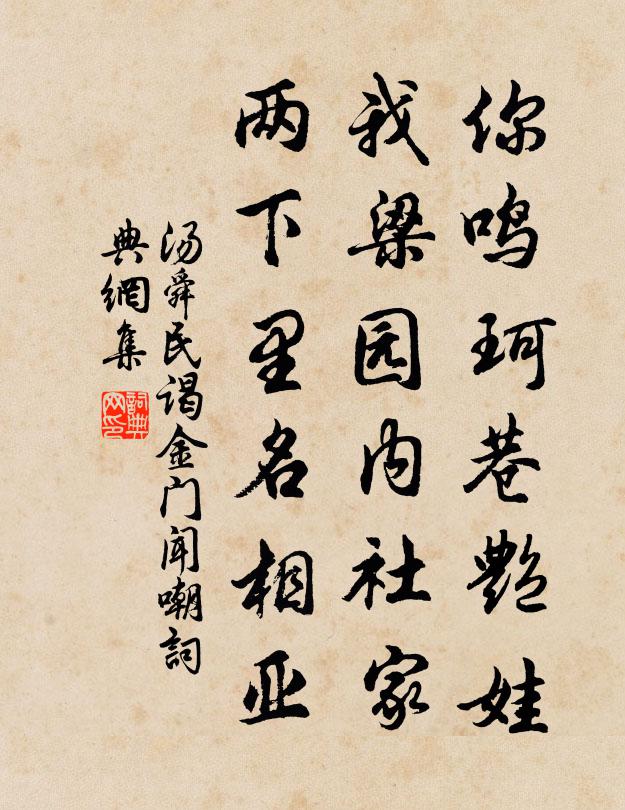 你鸣珂巷艳娃
我梁园内社家
两下里名相亚
汤舜民谒金门闻嘲詞
典網集
詞典
网印